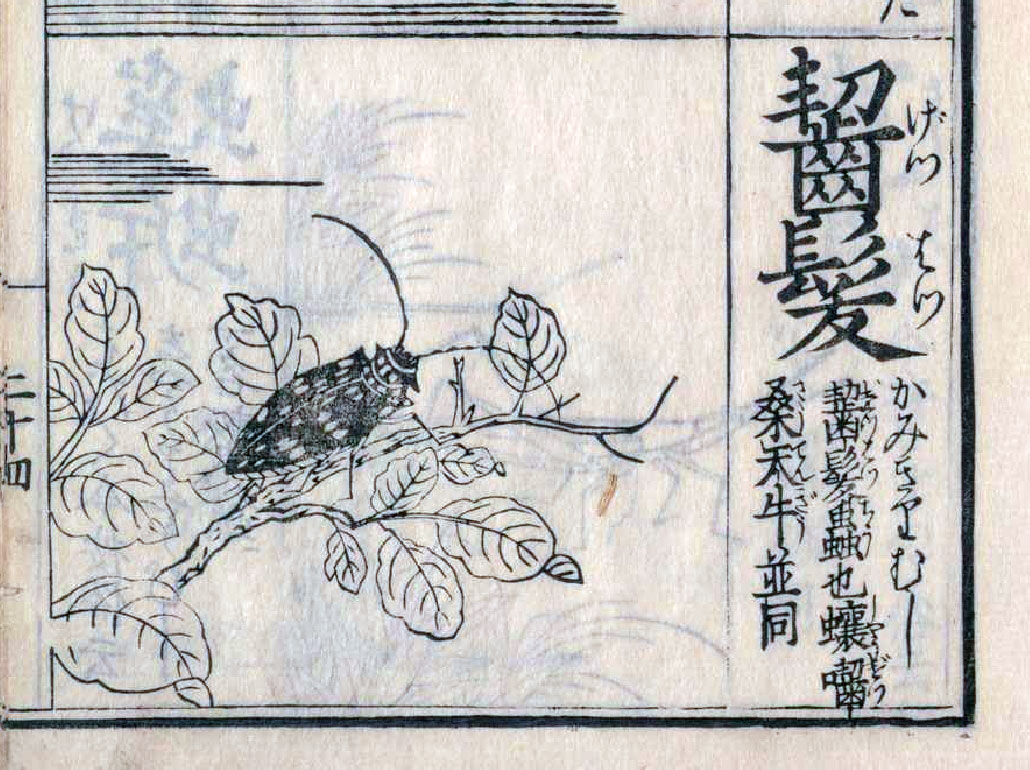 齧髪
げつ はつ
かみきりむし
齧髪 也 蠰 齧
桑天牛並同
二十四